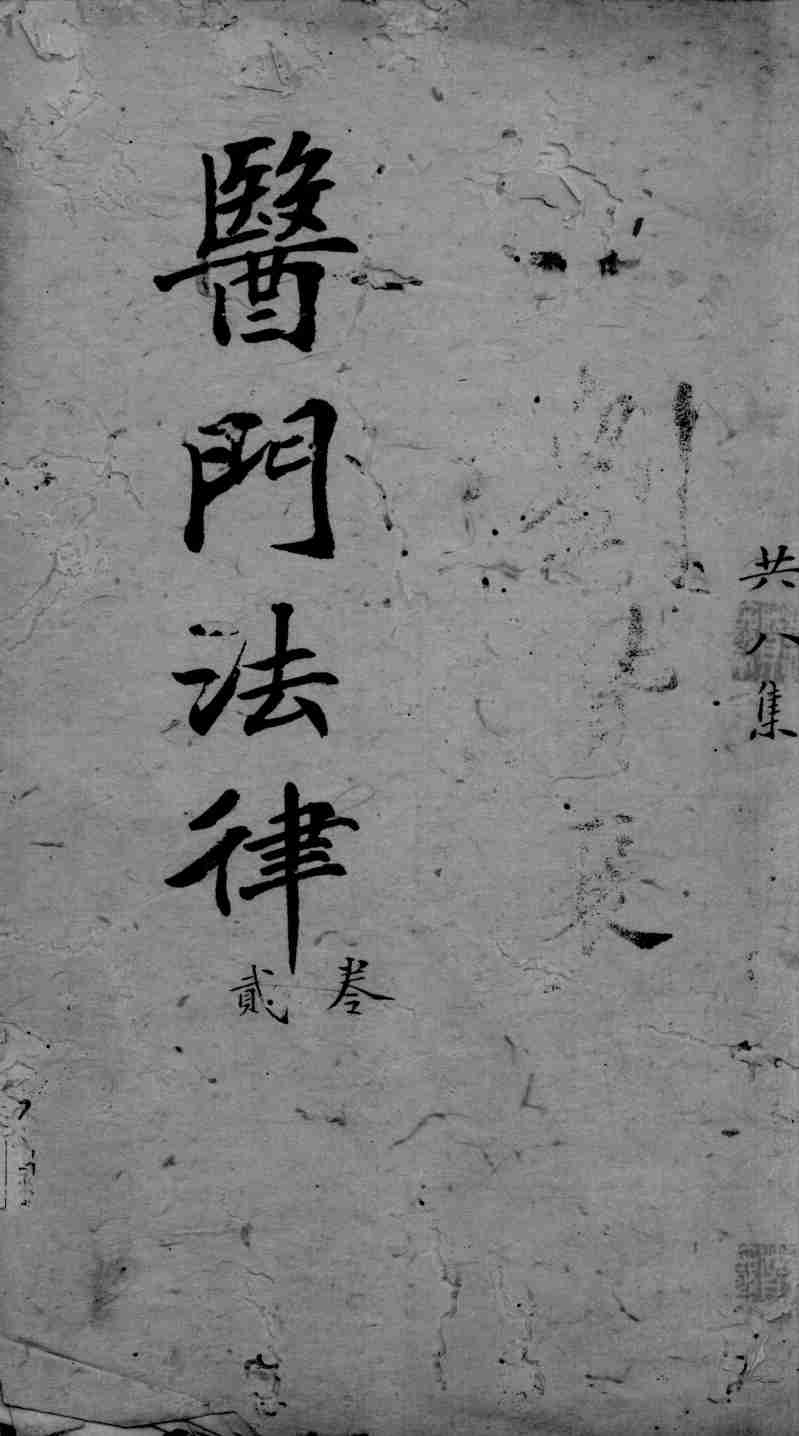 共八集
醫門法律
卷貳